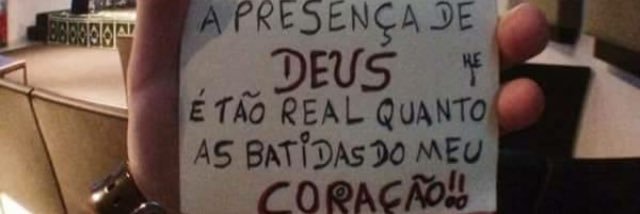 A PRESENÇA DE
DEUS
É TÃO REAL QUANTO
AS BATIDAS DO MEU
CORAÇÃO!!